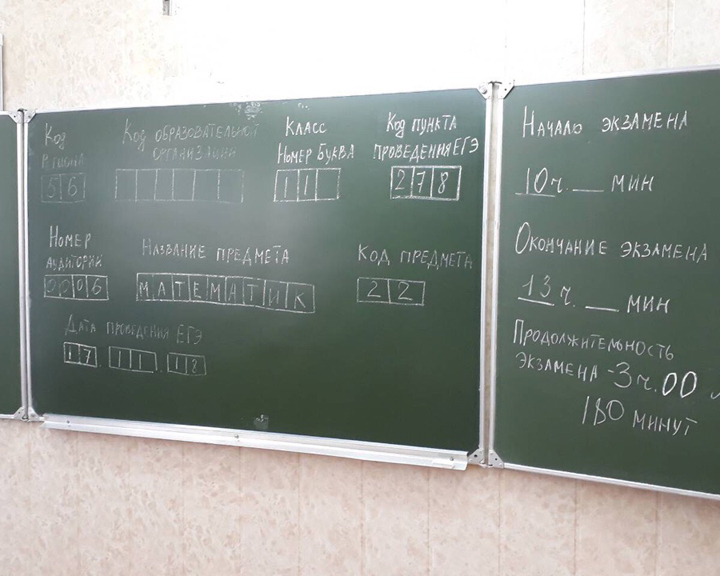 Код
региона
5 6
Код образовательной
организации
Класс
Номер Буква
1 1
Код пункта
проведения ЕГЭ
2 7 8
Номер
аудитории
0 2 0 6
Название предмета
М А Т Е М А Т И К
Код предмета
2 2
Дата проведения ЕГЭ
1 7 . 1 1 . 1 8
Начало экзамена
10 ч. __ мин
Окончание экзамена
13 ч. __ мин
Продолжительность
экзамена - 3 ч. 00
180 минут